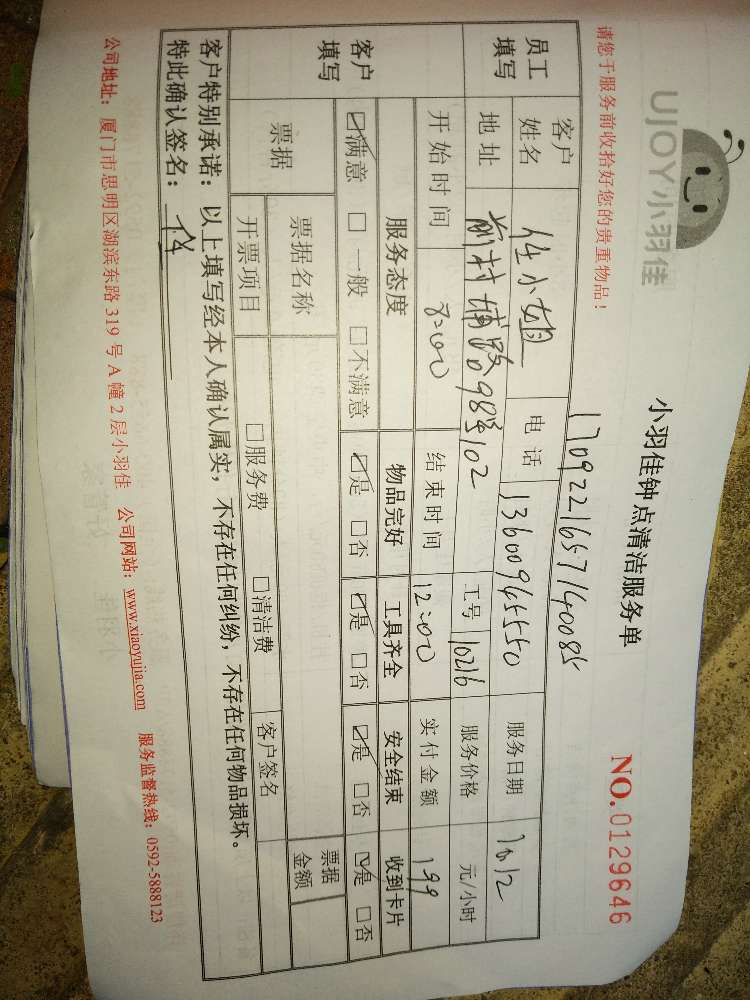 UJOY小羽佳
小羽佳钟点清洁服务单
NO.0129646
请您于服务前收拾好您的贵重物品！
1709221657140085
员工填写
客户姓名 任小姐 电话 13600965550 服务日期 10.12
地址 前村埔路098号102 工号 10216 服务价格 元/小时
开始时间 8:00 结束时间 12:00 实付金额 199
客户填写
服务态度 物品完好 工具齐全 安全结束 收到卡片
☑满意 □一般 □不满意 ☑是 □否 ☑是 □否 ☑是 □否 ☑是 □否
票据 票据名称 票据金额
开票项目 □服务费 □清洁费 客户签名
客户特别承诺：以上填写经本人确认属实，不存在任何纠纷，不存在任何物品损坏。
特此确认签名：
公司地址：厦门市思明区湖滨东路319号A幢2层小羽佳 公司网站：www.xiaoyujia.com 服务监督热线：0592-5888123